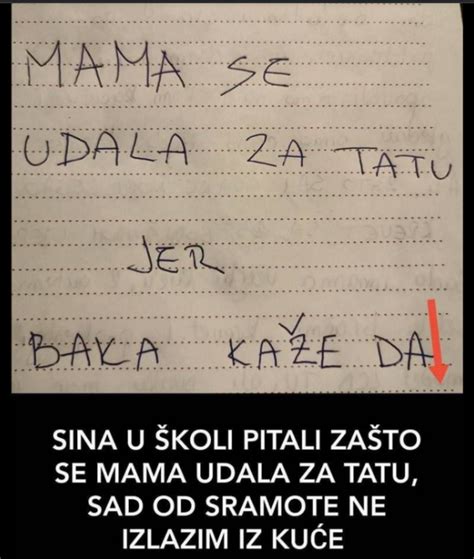 MAMA SE
UDALA ZA TATU
JER
BAKA KAŽE DA
SINA U ŠKOLI PITALI ZAŠTO
SE MAMA UDALA ZA TATU,
SAD OD SRAMOTE NE
IZLAZIM IZ KUĆE